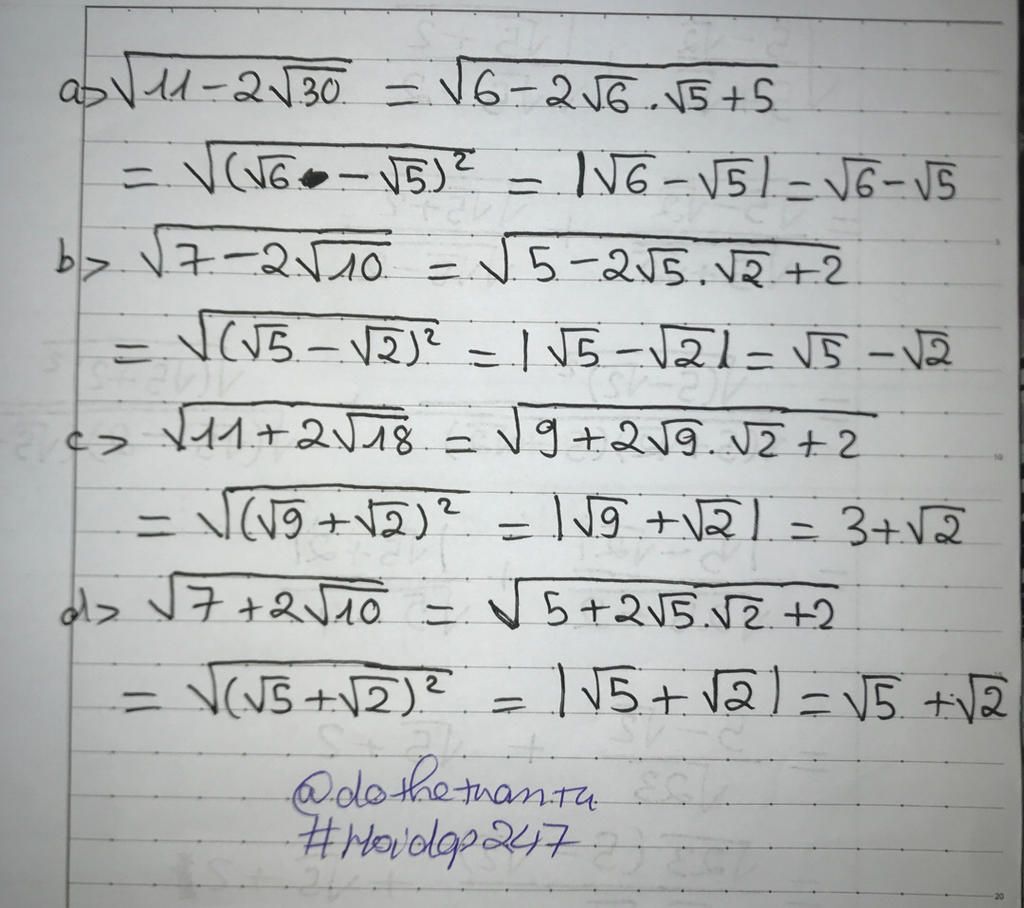 a> √(11 - 2√30) = √(6 - 2√6 . √5 + 5)
= √((√6 - √5)²) = |√6 - √5| = √6 - √5
b> √(7 - 2√10) = √(5 - 2√5 . √2 + 2)
= √((√5 - √2)²) = |√5 - √2| = √5 - √2
c> √(11 + 2√18) = √(9 + 2√9 . √2 + 2)
= √((√9 + √2)²) = |√9 + √2| = 3 + √2
d> √(7 + 2√10) = √(5 + 2√5 . √2 + 2)
= √((√5 + √2)²) = |√5 + √2| = √5 + √2
@dothetuantu
#Hoidap247